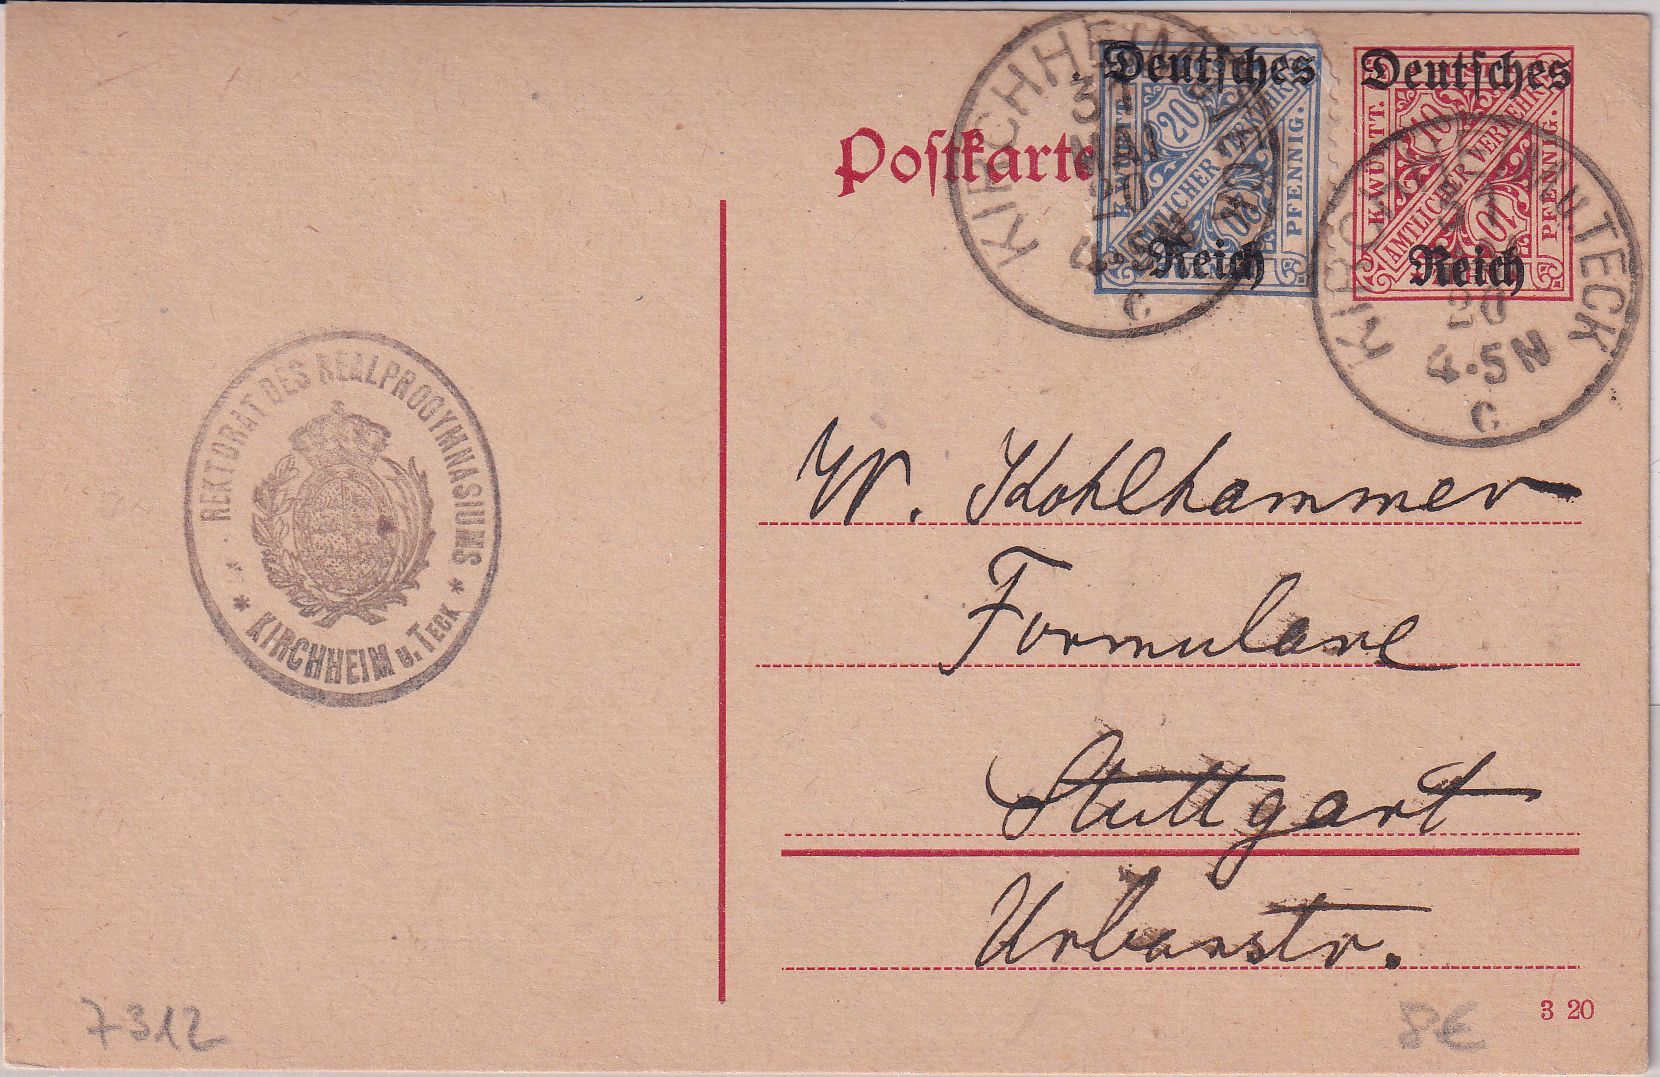 Postkarte
Deutsches
K. WÜRTT.
20
AMTLICHER VERKEHR
20
PFENNIG.
Reich
Deutsches
K. WÜRTT.
10
AMTLICHER VERKEHR
10
PFENNIG.
Reich
KIRCHHEIM UNT. TECK
31
MAI
20
4-5N
c
KIRCHHEIM UNT. TECK
31
20
4-5N
c
REKTORAT DES REALPROGYMNASIUMS
* KIRCHHEIM u. TECK *
W. Kohlhammer
Formulare
Stuttgart
Urbanstr.
7312
8€
3 20